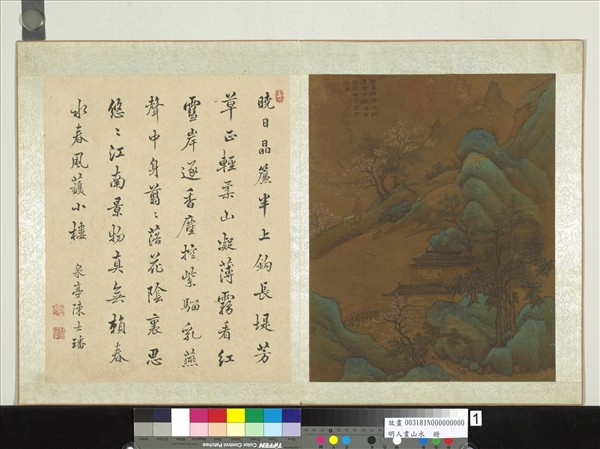 曉日晶簾半上鈎長堤芳
草正輕柔山凝薄霧看紅
雪岸逐香塵控紫騮乳燕
聲中身翦〻落花陰裏思
悠〻江南景物真無賴春
水春風護小樓
泉亭陳士璠
TIFFEN Color Control Patches
故畫 003181N000000000
明人畫山水 冊
1